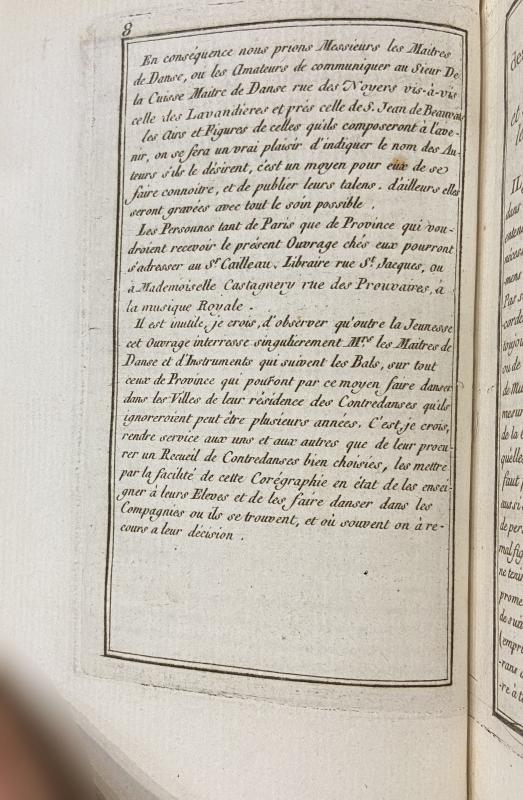 8
En conséquence nous prions Messieurs les Maitres
de Danse, ou les Amateurs de communiquer au Sieur De
la Cuisse Maitre de Danse rue des Noyers vis-à-vis
celle des Lavandieres et près celle de S. Jean de Beauvais
les Airs et Figures de celles qu'ils composeront à l'ave-
nir, on se fera un vrai plaisir d'indiquer le nom des Au-
teurs s'ils le désirent, c'est un moyen pour eux de se
faire connoitre, et de publier leurs talens. d'ailleurs elles
seront gravées avec tout le soin possible.
Les Personnes tant de Paris que de Province qui vou-
droient recevoir le présent Ouvrage chés eux pourront
s'adresser au Sr. Cailleau, Libraire rue St. Jacques, ou
à Mademoiselle Castagnery rue des Prouvaires, à
la musique Royale.
Il est inutile, je crois, d'observer qu'outre la Jeunesse
cet Ouvrage interresse singulierement Mrs les Maitres de
Danse et d'Instruments qui suivent les Bals, sur tout
ceux de Province qui pouront par ce moyen faire danser
dans les Villes de leur résidence des Contredanses qu'ils
ignoreroient peut être plusieurs années. C'est, je crois,
rendre service aux uns et aux autres que de leur procu-
rer un Recueil de Contredanses bien choisies, les mettre
par la facilité de cette Corégraphie en état de les ensei-
gner à leurs Eleves et de les faire danser dans les
Compagnies ou ils se trouvent, et où souvent on à re-
cours a leur décision.